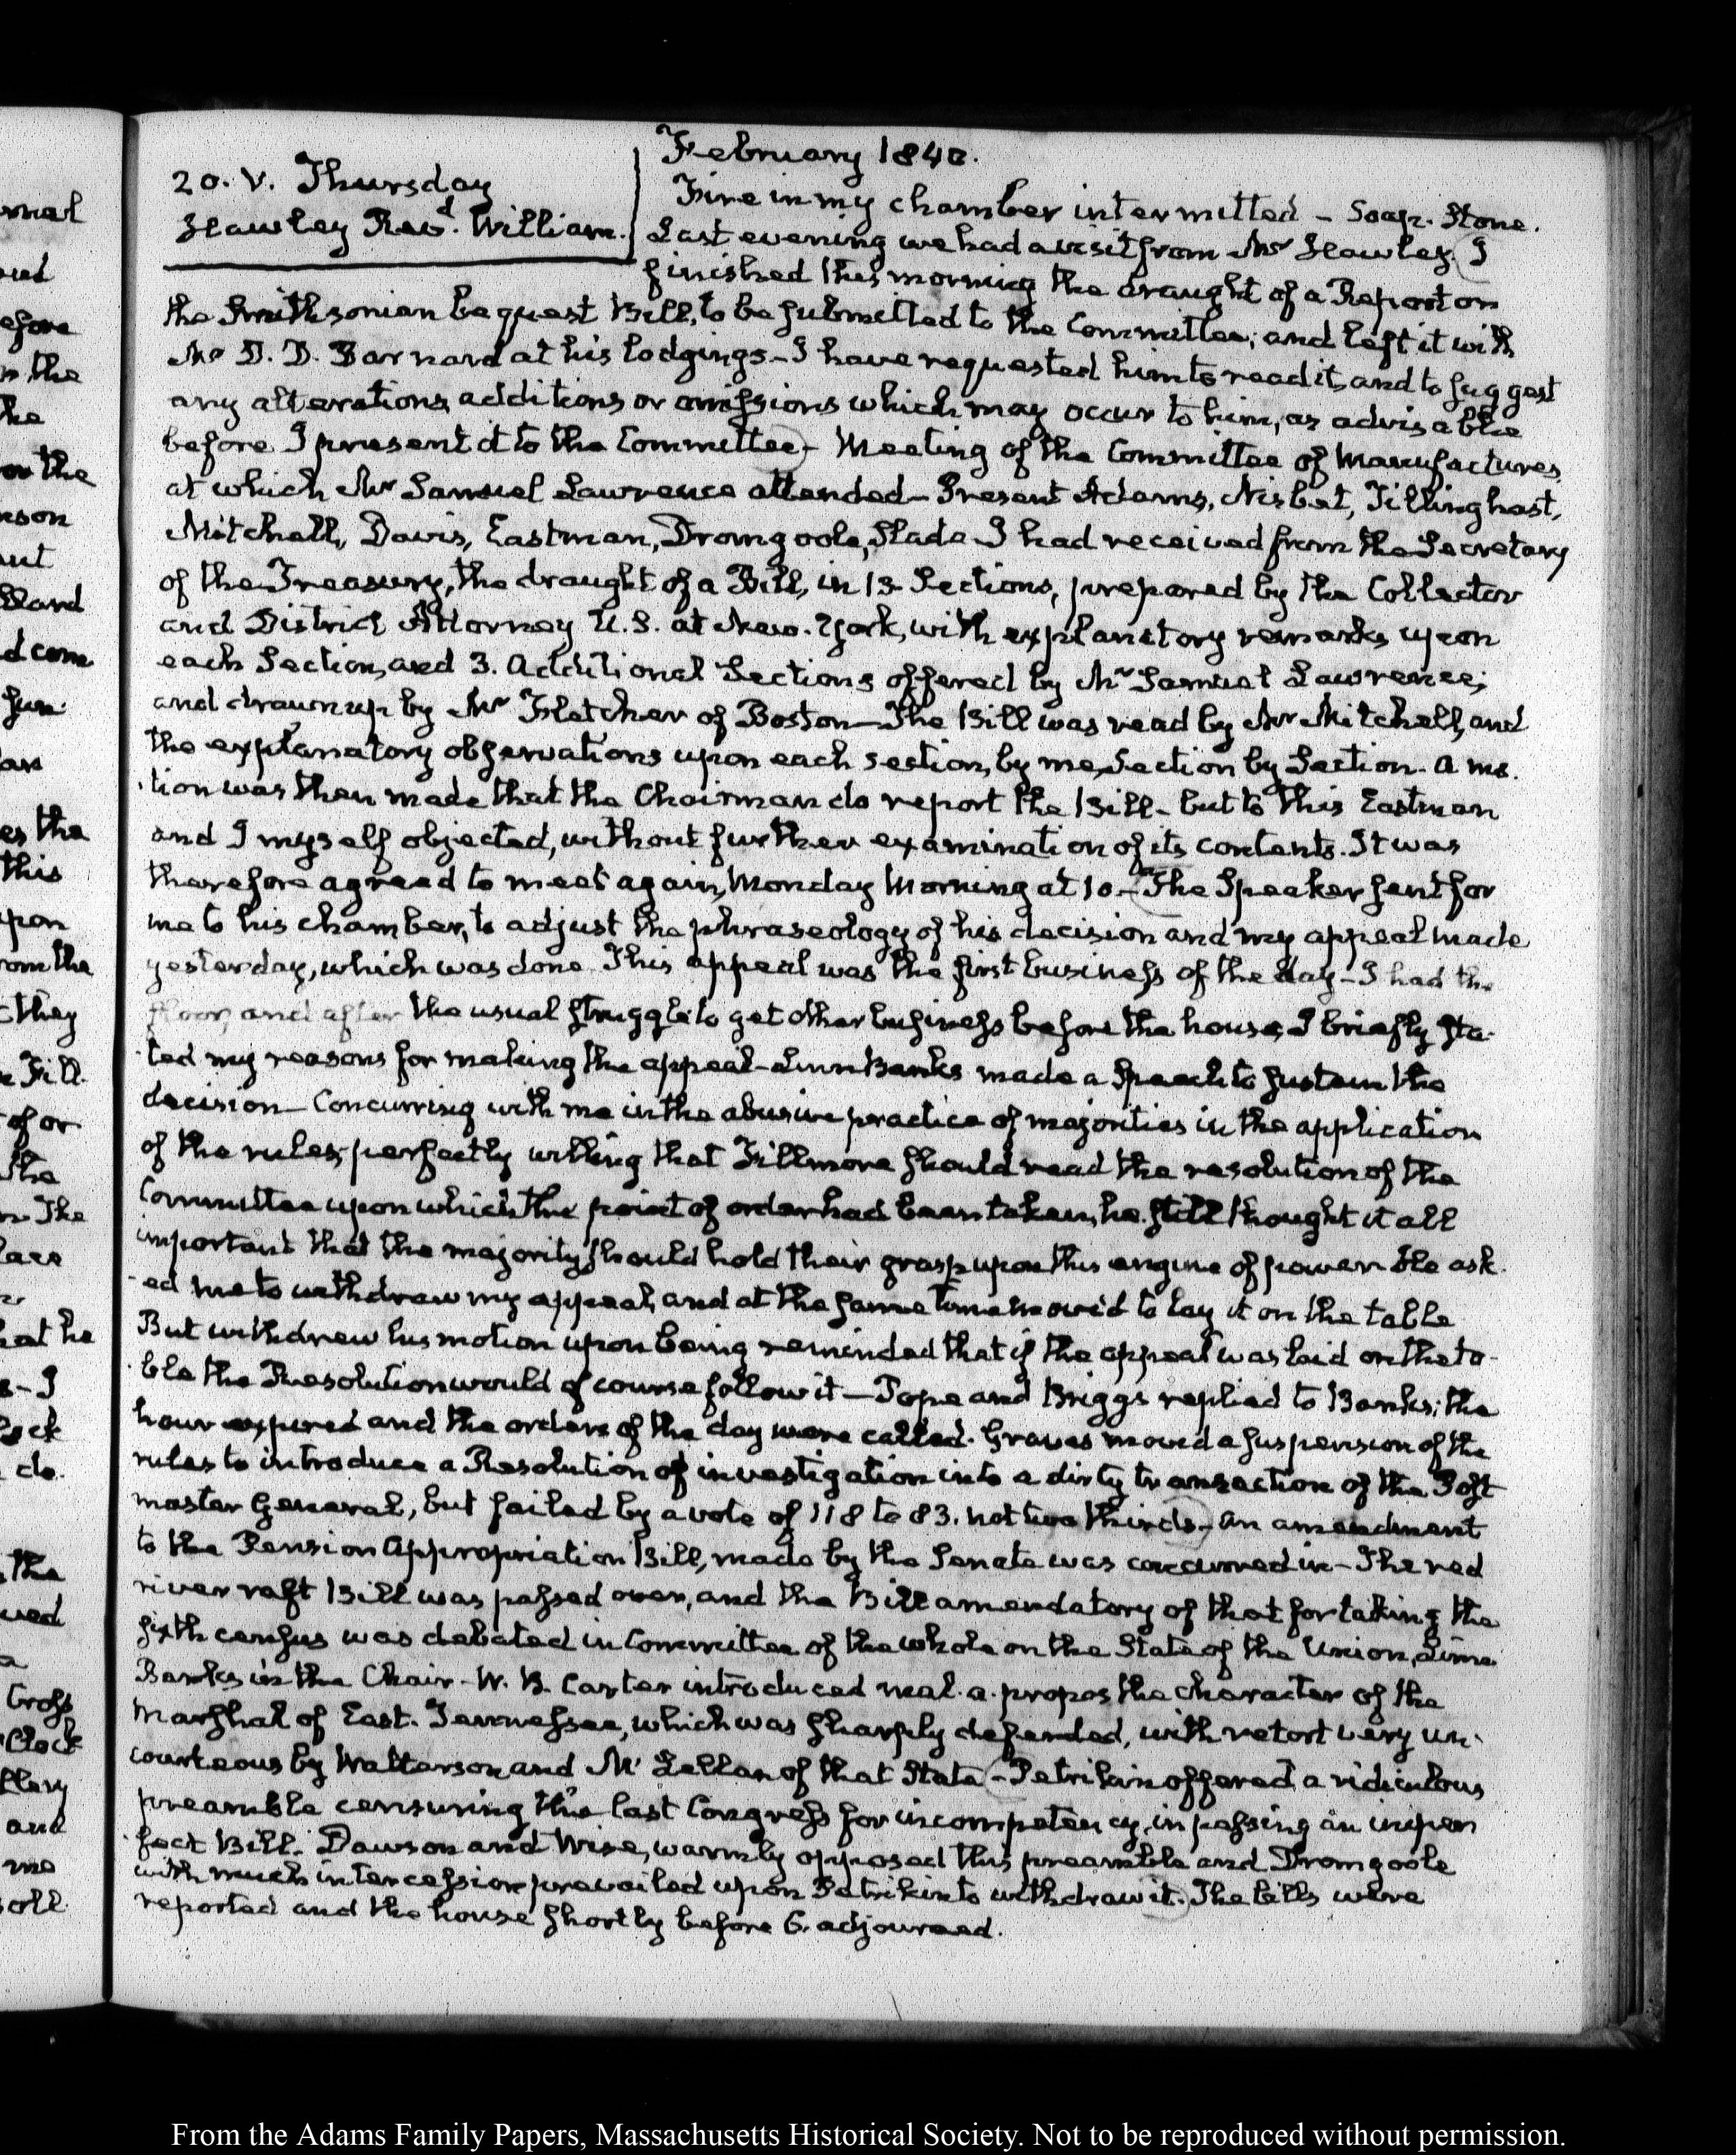 February 1840.
20. V. Thursday
Hawley Revd. William.
Fire in my chamber intermitted - Soap. Stone.
Last evening we had a visit from Mr Hawley. I
finished this morning the draught of a Report on
the Smithsonian bequest Bill, to be submitted to the Committee; and left it with
Mr D. D. Barnard at his lodgings - I have requested him to read it, and to suggest
any alterations additions or omissions which may occur to him, as advisable
before I present it to the Committee - Meeting of the Committee of Manufactures,
at which Mr Samuel Lawrence attended - Present Adams, Nisbet, Tillinghast,
Mitchell, Davis, Eastman, Dromgoole, Slade. I had received from the Secretary
of the Treasury, the draught of a Bill, in 13 Sections, prepared by the Collector
and District Attorney U.S. at New-York, with explanatory remarks upon
each Section, and 3. Additional Sections offered by Mr Samuel Lawrence;
and drawn up by Mr Fletcher of Boston - The Bill was read by Mr Mitchell, and
the explanatory observations upon each section, by me, Section by Section. A mo-
tion was then made that the Chairman do report the Bill - but to this Eastman
and I myself objected, without further examination of its contents. It was
therefore agreed to meet again, Monday Morning at 10 - The Speaker sent for
me to his chamber, to adjust the phraseology of his decision and my appeal made
yesterday, which was done. This appeal was the first business of the day - I had the
floor, and after the usual struggle to get other business before the house, I briefly sta-
ted my reasons for making the appeal - Linn Banks made a Speech to sustain the
decision - Concurring with me in the abusive practice of majorities in the application
of the rules; perfectly willing that Fillmore should read the resolution of the
Committee upon which the point of order had been taken, he still thought it all
important that the majority should hold their grasp upon this engine of power. He ask-
ed me to withdraw my appeal, and at the same time moved to lay it on the table
But withdrew his motion upon being reminded that if the appeal was laid on the ta-
ble the Resolution would of course follow it - Pope and Briggs replied to Banks; the
hour expired and the orders of the day were called. Graves moved a suspension of the
rules to introduce a Resolution of investigation into a dirty transaction of the Post
master General, but failed by a vote of 118 to 83. not two thirds - An amendment
to the Pension Appropriation Bill, made by the Senate was concurred in - The red
river raft Bill was passed over, and the Bill amendatory of that for taking the
sixth census was debated in Committee of the whole on the State of the Union, Linn
Banks in the Chair - W. B. Carter introduced mal-a-propos the character of the
Marshal of East-Tennessee, which was sharply defended, with retort very un-
courteous by Watterson and Mc Lellan of that State - Petrikin offered a ridiculous
preamble censuring the last Congress for incompetency, in passing an imper
fect Bill. Dawson and Wise, warmly opposed this preamble and Dromgoole
with much intercession prevailed upon Petrikin to withdraw it. The bills were
reported and the house shortly before 6. adjourned.
From the Adams Family Papers, Massachusetts Historical Society. Not to be reproduced without permission.